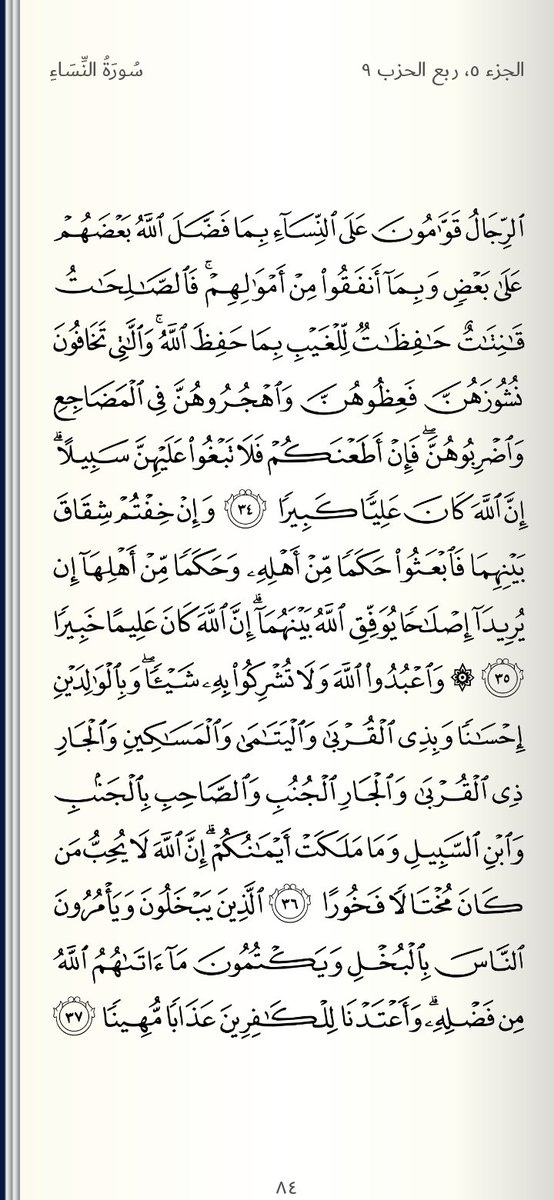 الجزء ٥، ربع الحزب ٩ سُورَةُ النِّسَاءِ
ٱلرِّجَالُ قَوَّٰمُونَ عَلَى ٱلنِّسَآءِ بِمَا فَضَّلَ ٱللَّهُ بَعۡضَهُمۡ
عَلَىٰ بَعۡضٖ وَبِمَآ أَنفَقُواْ مِنۡ أَمۡوَٰلِهِمۡۚ فَٱلصَّٰلِحَٰتُ
قَٰنِتَٰتٌ حَٰفِظَٰتٞ لِّلۡغَيۡبِ بِمَا حَفِظَ ٱللَّهُۚ وَٱلَّٰتِي تَخَافُونَ
نُشُوزَهُنَّ فَعِظُوهُنَّ وَٱهۡجُرُوهُنَّ فِي ٱلۡمَضَاجِعِ
وَٱضۡرِبُوهُنَّۖ فَإِنۡ أَطَعۡنَكُمۡ فَلَا تَبۡغُواْ عَلَيۡهِنَّ سَبِيلًاۗ
إِنَّ ٱللَّهَ كَانَ عَلِيّٗا كَبِيرٗا ٣٤ وَإِنۡ خِفۡتُمۡ شِقَاقَ
بَيۡنِهِمَا فَٱبۡعَثُواْ حَكَمٗا مِّنۡ أَهۡلِهِۦ وَحَكَمٗا مِّنۡ أَهۡلِهَآ إِن
يُرِيدَآ إِصۡلَٰحٗا يُوَفِّقِ ٱللَّهُ بَيۡنَهُمَآۗ إِنَّ ٱللَّهَ كَانَ عَلِيمًا خَبِيرٗا
٣٥ ۞ وَٱعۡبُدُواْ ٱللَّهَ وَلَا تُشۡرِكُواْ بِهِۦ شَيۡـٔٗاۖ وَبِٱلۡوَٰلِدَيۡنِ
إِحۡسَٰنٗا وَبِذِي ٱلۡقُرۡبَىٰ وَٱلۡيَتَٰمَىٰ وَٱلۡمَسَٰكِينِ وَٱلۡجَارِ
ذِي ٱلۡقُرۡبَىٰ وَٱلۡجَارِ ٱلۡجُنُبِ وَٱلصَّاحِبِ بِٱلۡجَنۢبِ
وَٱبۡنِ ٱلسَّبِيلِ وَمَا مَلَكَتۡ أَيۡمَٰنُكُمۡۗ إِنَّ ٱللَّهَ لَا يُحِبُّ مَن
كَانَ مُخۡتَالٗا فَخُورًا ٣٦ ٱلَّذِينَ يَبۡخَلُونَ وَيَأۡمُرُونَ
ٱلنَّاسَ بِٱلۡبُخۡلِ وَيَكۡتُمُونَ مَآ ءَاتَىٰهُمُ ٱللَّهُ
مِن فَضۡلِهِۦۗ وَأَعۡتَدۡنَا لِلۡكَٰفِرِينَ عَذَابٗا مُّهِينٗا ٣٧
٨٤